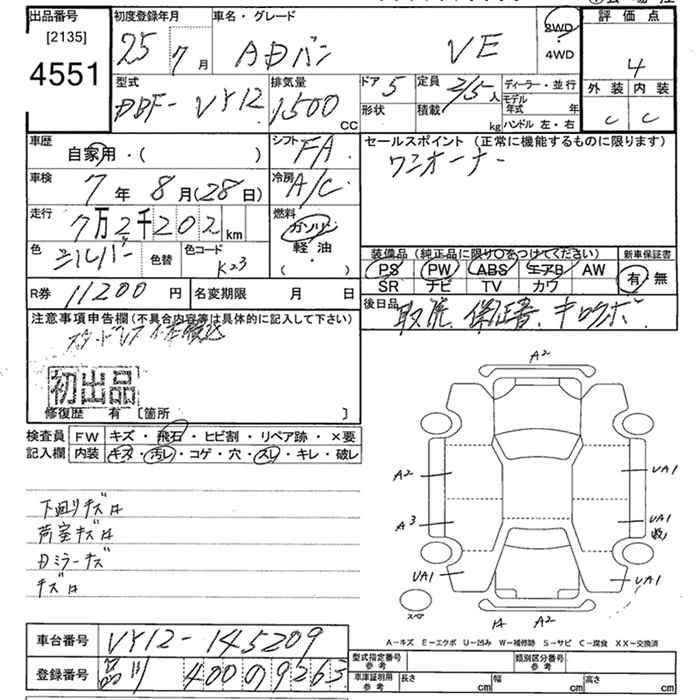 出品番号 初度登録年月 車名・グレード 2WD 評価点
[2135] 25年 7月 ADバン VE 4WD 4
4551 型式 排気量 ドア 5 定員 2/5人 ディーラー・並行 外装 内装
DBF-VY12 1500cc 形状 積載 kg モデル年式 年 C C
ハンドル 左・右
車歴 シフト FA セールスポイント (正常に機能するものに限ります)
自家用・( ) ワンオーナー
車検 7年 8月(28日) 冷房 A/C
走行 7万2千202km 燃料 ガソリン
軽油
・
( )
色 シルバー 色替 色コード K23 装備品 (純正品に限り○をつけてください) 新車保証書
PS PW ABS エアB AW 有 無
SR ナビ TV カワ
R券 11200円 名変期限 月 日 後日品
取説 保証書
注意事項申告欄 (不具合内容等は具体的に記入して下さい)
初出品
修復歴 有 [箇所 ]
検査員 FW キズ・飛石・ヒビ割・リペア跡・×要
記入欄 内装 キズ・汚レ・コゲ・穴・スレ・キレ・破レ
A2
A2 UA1
A3 UA1
UA1 UA1
スペア A2
下廻りキズ
荷室キズ
ミラーキズ
キズ
A-キズ E-エクボ U-凹み W-補修跡 S-サビ C-腐食 XX-交換済
車台番号 VY12-145209 型式指定番号 参考 類別区分番号 参考
登録番号 品川 400 の 9263 車庫証明用 参考 長さ cm 幅 cm 高さ cm